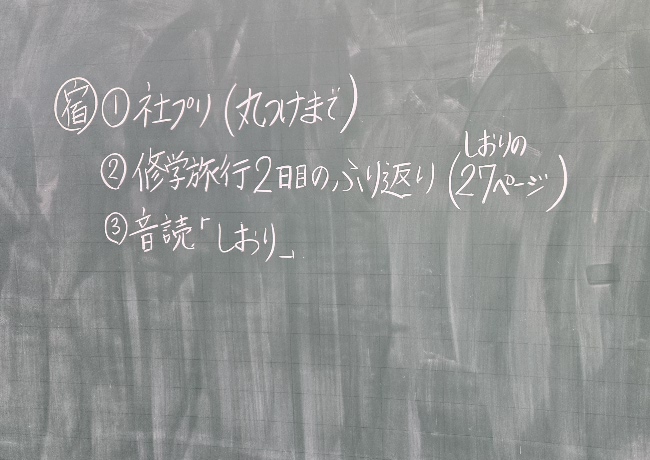 宿①社プリ(丸つけまで)
②修学旅行2日目のふり返り(しおりの27ページ)
③音読「しおり」